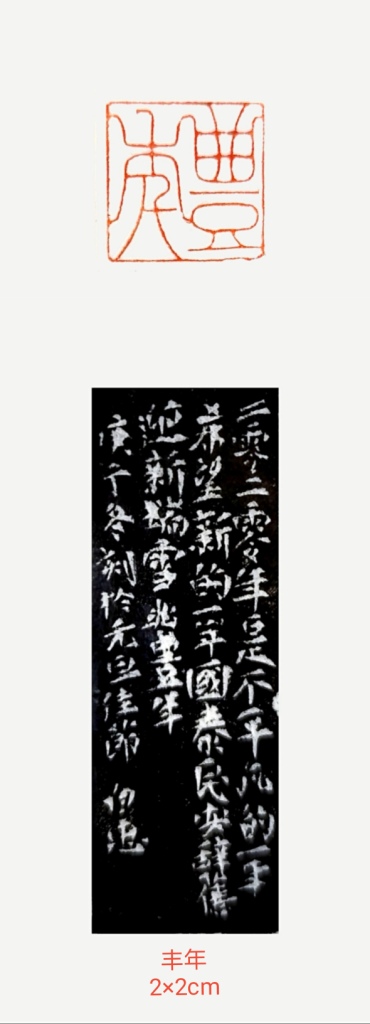 豐年
二零二零年是不平凡的一年
希望新的一年國泰民安辭舊
迎新瑞雪兆豐年
庚子冬刻於元旦佳節
丰年
2×2cm